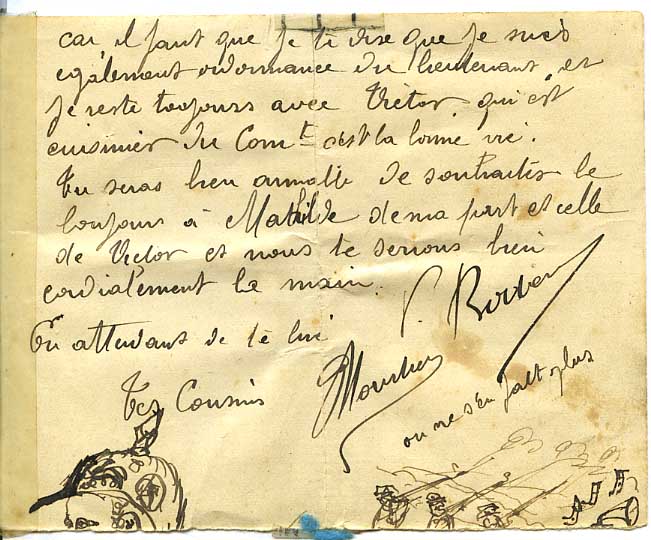 car il faut que je te dise que je suis
également ordonnance du lieutenant et
je reste toujours avec Victor qui est
cuisinier du Comt c'est la bonne vie.
Tu seras bien aimable de souhaiter le
bonjour à Mathilde de ma part et celle
de Victor et nous te serrons bien
cordialement la main.
En attendant de te lire
Tes Cousins
V.
on ne s'en fait plus